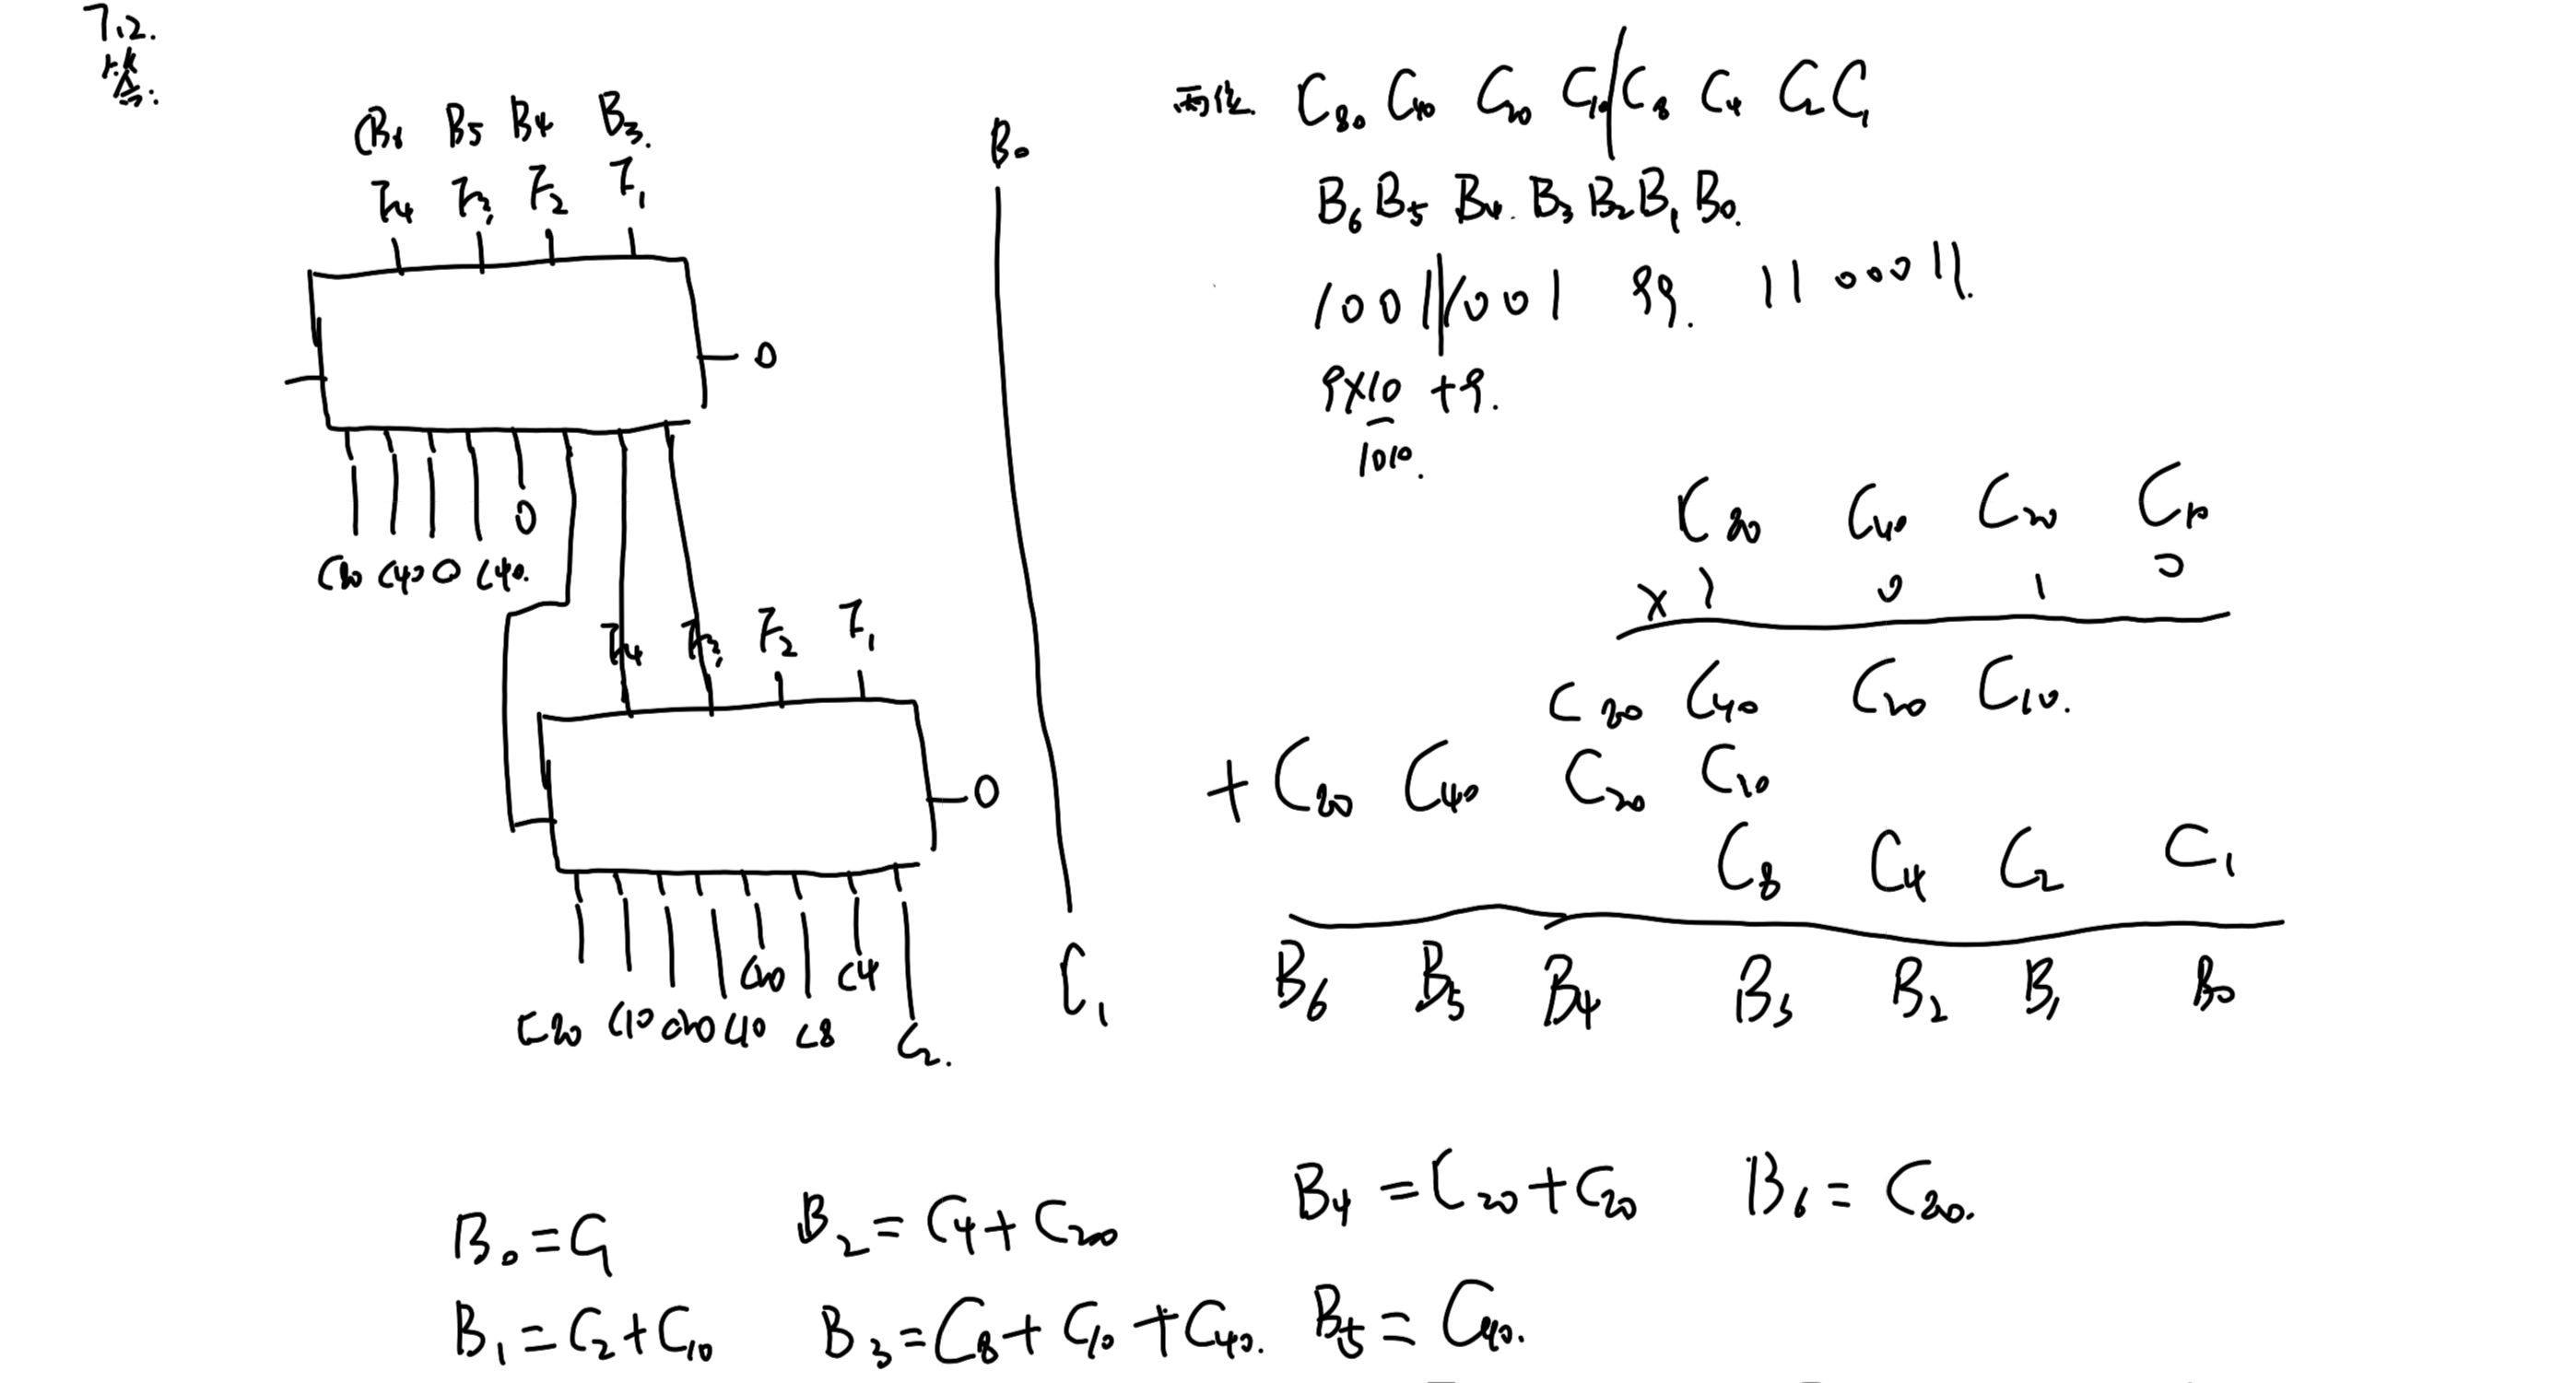 7.2.
答:
B6 B5 B4 B3.
F4 F3 F2 F1
0
C80 C40 0 C40.
0
F4 F3 F2 F1
0
C20 C4
C80 C10 C20 C10 C8 C2.
B0
C1
两位 C80 C40 C20 C10 / C8 C4 C2 C1
B6 B5 B4. B3 B2 B1 B0.
1001/1001 99. 1100011.
9×10 +9.
1010.
C80 C40 C20 C10
× 1 0 1 0
C80 C40 C20 C10.
+ C80 C40 C20 C10
C8 C4 C2 C1
B6 B5 B4 B3 B2 B1 B0
B0 = C1 B2 = C4 + C20 B4 = C20 + C80 B6 = C80.
B1 = C2 + C10 B3 = C8 + C10 + C40. B5 = C40.